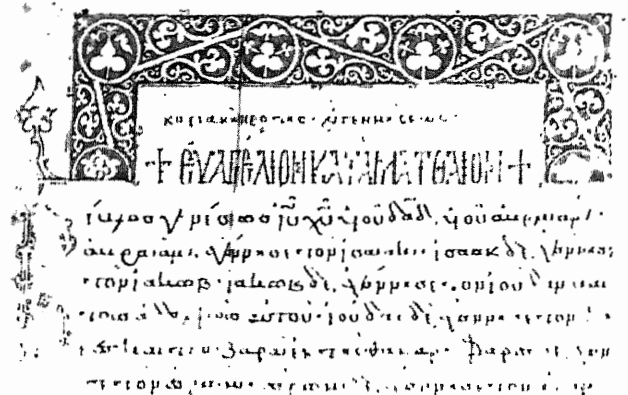 κυριακὴ πρὸ τῆς χυ γεννήσεως
+ ΕΥΑΓΓΕΛΙΟΝ ΚΑΤΑ ΜΑΤΘΑΙΟΝ +
ίβλος γενέσεως ἰυ χυ ὑιοῦ δαδ, ὑιοῦ ἀβραάμ·
ἀβραὰμ ἐγέννησε τὸν ἰσαάκ· ἰσαὰκ δὲ ἐγέννησε
τὸν ἰακώβ· ἰακὼβ δὲ ἐγέννησε τὸν ἰούδαν καὶ
τοὺς ἀδελφοὺς αὐτοῦ· ἰούδας δὲ ἐγέννησε τὸν
ζαρὰ ἐκ τῆς θάμαρ· φαρὲς δὲ ἐγέν
νησε τὸν ἐσρώμ· ἐσρὼμ δὲ ἐγέννησε τὸν